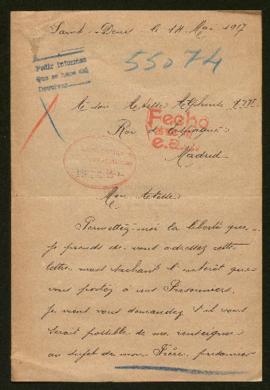 Saint-Denis le 14 Mai 1917
55074
Pedir informes
que se hace del
A Son Altesse Alphonse XIII
Roi d'Espagne
Madrid
Fecho
e.a.
Mon Altesse
Permettez-moi la liberté que
je prends de vous adresser cette
lettre, mais sachant l'intérêt que
vous portez à nos Prisonniers,
je viens vous demander s'il vous
serait possible de me renseigner
au sujet de mon Frère, prisonnier